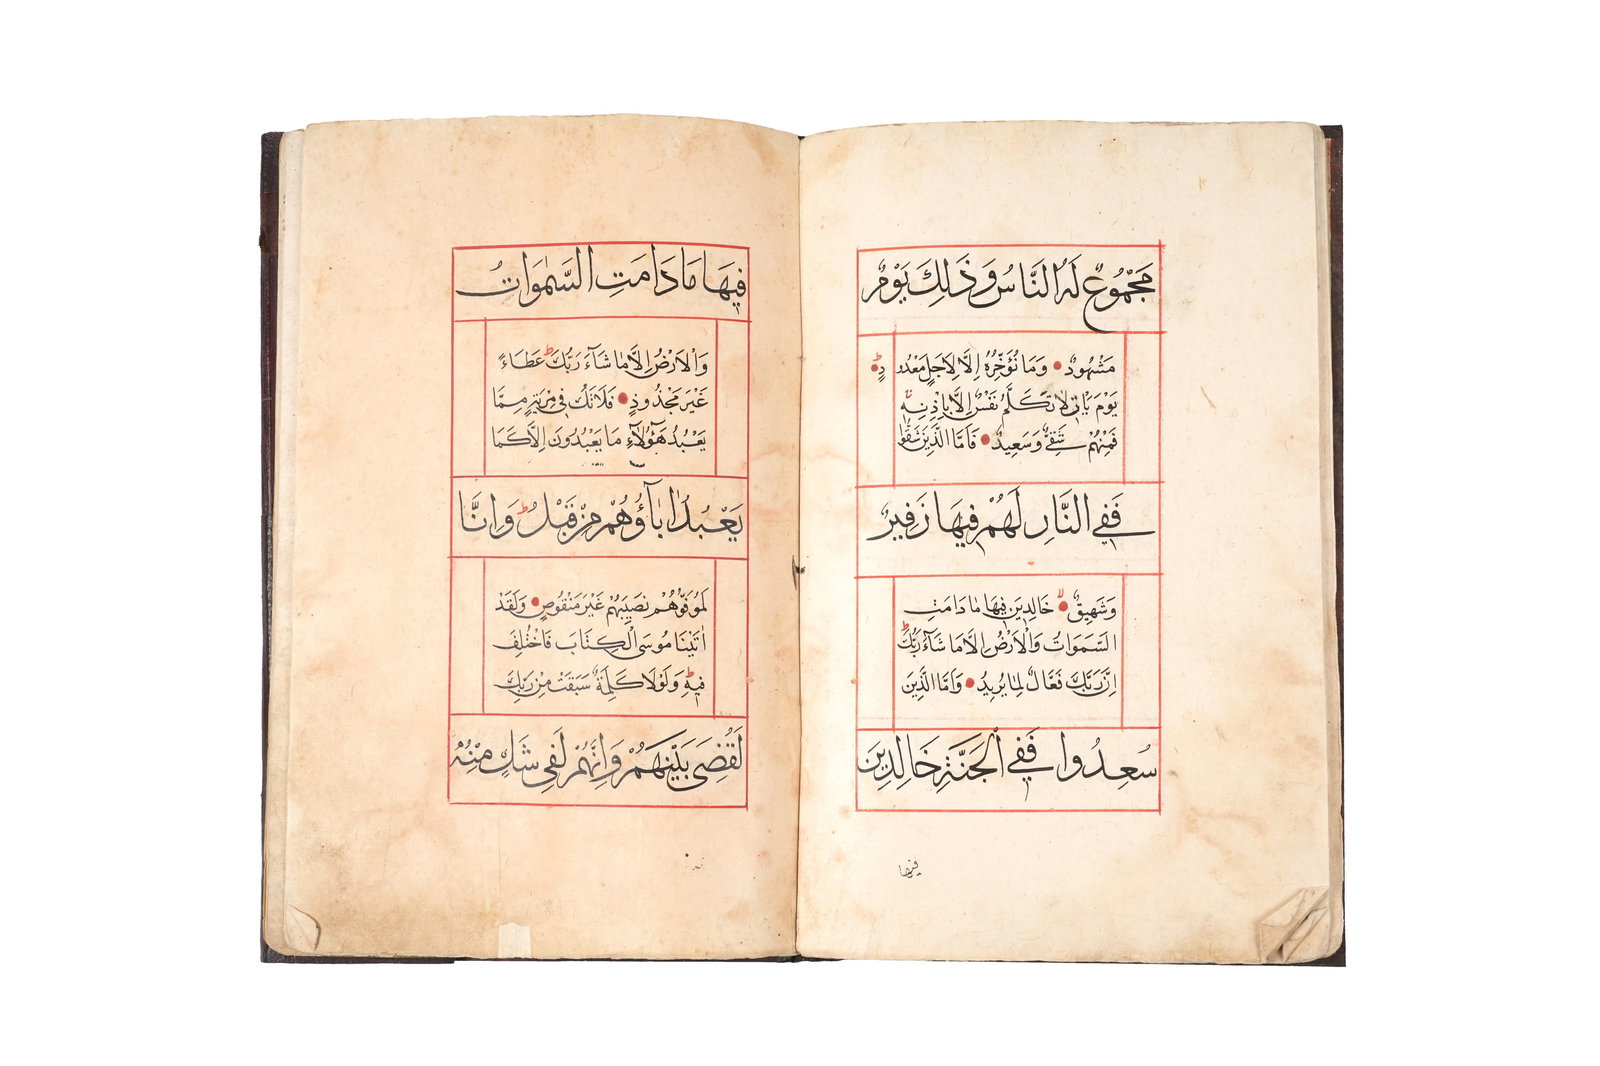 مَجْمُوعٌ لَهُ النَّاسُ وَذَلِكَ يَوْمٌ
مَشْهُودٌ وَمَا نُؤَخِّرُهُ اِلَّا لِاَجَلٍ مَعْدُودٍ
يَوْمَ يَاْتِ لَا تَكَلَّمُ نَفْسٌ اِلَّا بِاِذْنِهِ
فَمِنْهُمْ شَقِىٌّ وَسَعِيدٌ فَاَمَّا الَّذِينَ شَقُوا
فَفِى النَّارِ لَهُمْ فِيهَا زَفِيرٌ
وَشَهِيقٌ خَالِدِينَ فِيهَا مَا دَامَتِ
السَّمَوَاتُ وَالْاَرْضُ اِلَّا مَا شَاءَ رَبُّكَ
اِنَّ رَبَّكَ فَعَّالٌ لِمَا يُرِيدُ وَاَمَّا الَّذِينَ
سُعِدُوا فَفِى الْجَنَّةِ خَالِدِينَ
فيها
فِيهَا مَا دَامَتِ السَّمٰوَاتُ
وَالْاَرْضُ اِلَّا مَا شَاءَ رَبُّكَ عَطَاءً
غَيْرَ مَجْذُوذٍ فَلَا تَكُ فِى مِرْيَةٍ مِمَّا
يَعْبُدُ هَؤُلَاءِ مَا يَعْبُدُونَ اِلَّا كَمَا
يَعْبُدُ اٰبَاؤُهُمْ مِنْ قَبْلُ وَاِنَّا
لَمُوَفُّوهُمْ نَصِيبَهُمْ غَيْرَ مَنْقُوصٍ وَلَقَدْ
اٰتَيْنَا مُوسَى الْكِتَابَ فَاخْتُلِفَ
فِيهِ وَلَوْلَا كَلِمَةٌ سَبَقَتْ مِنْ رَبِّكَ
لَقُضِىَ بَيْنَهُمْ وَاِنَّهُمْ لَفِى شَكٍّ مِنْهُ